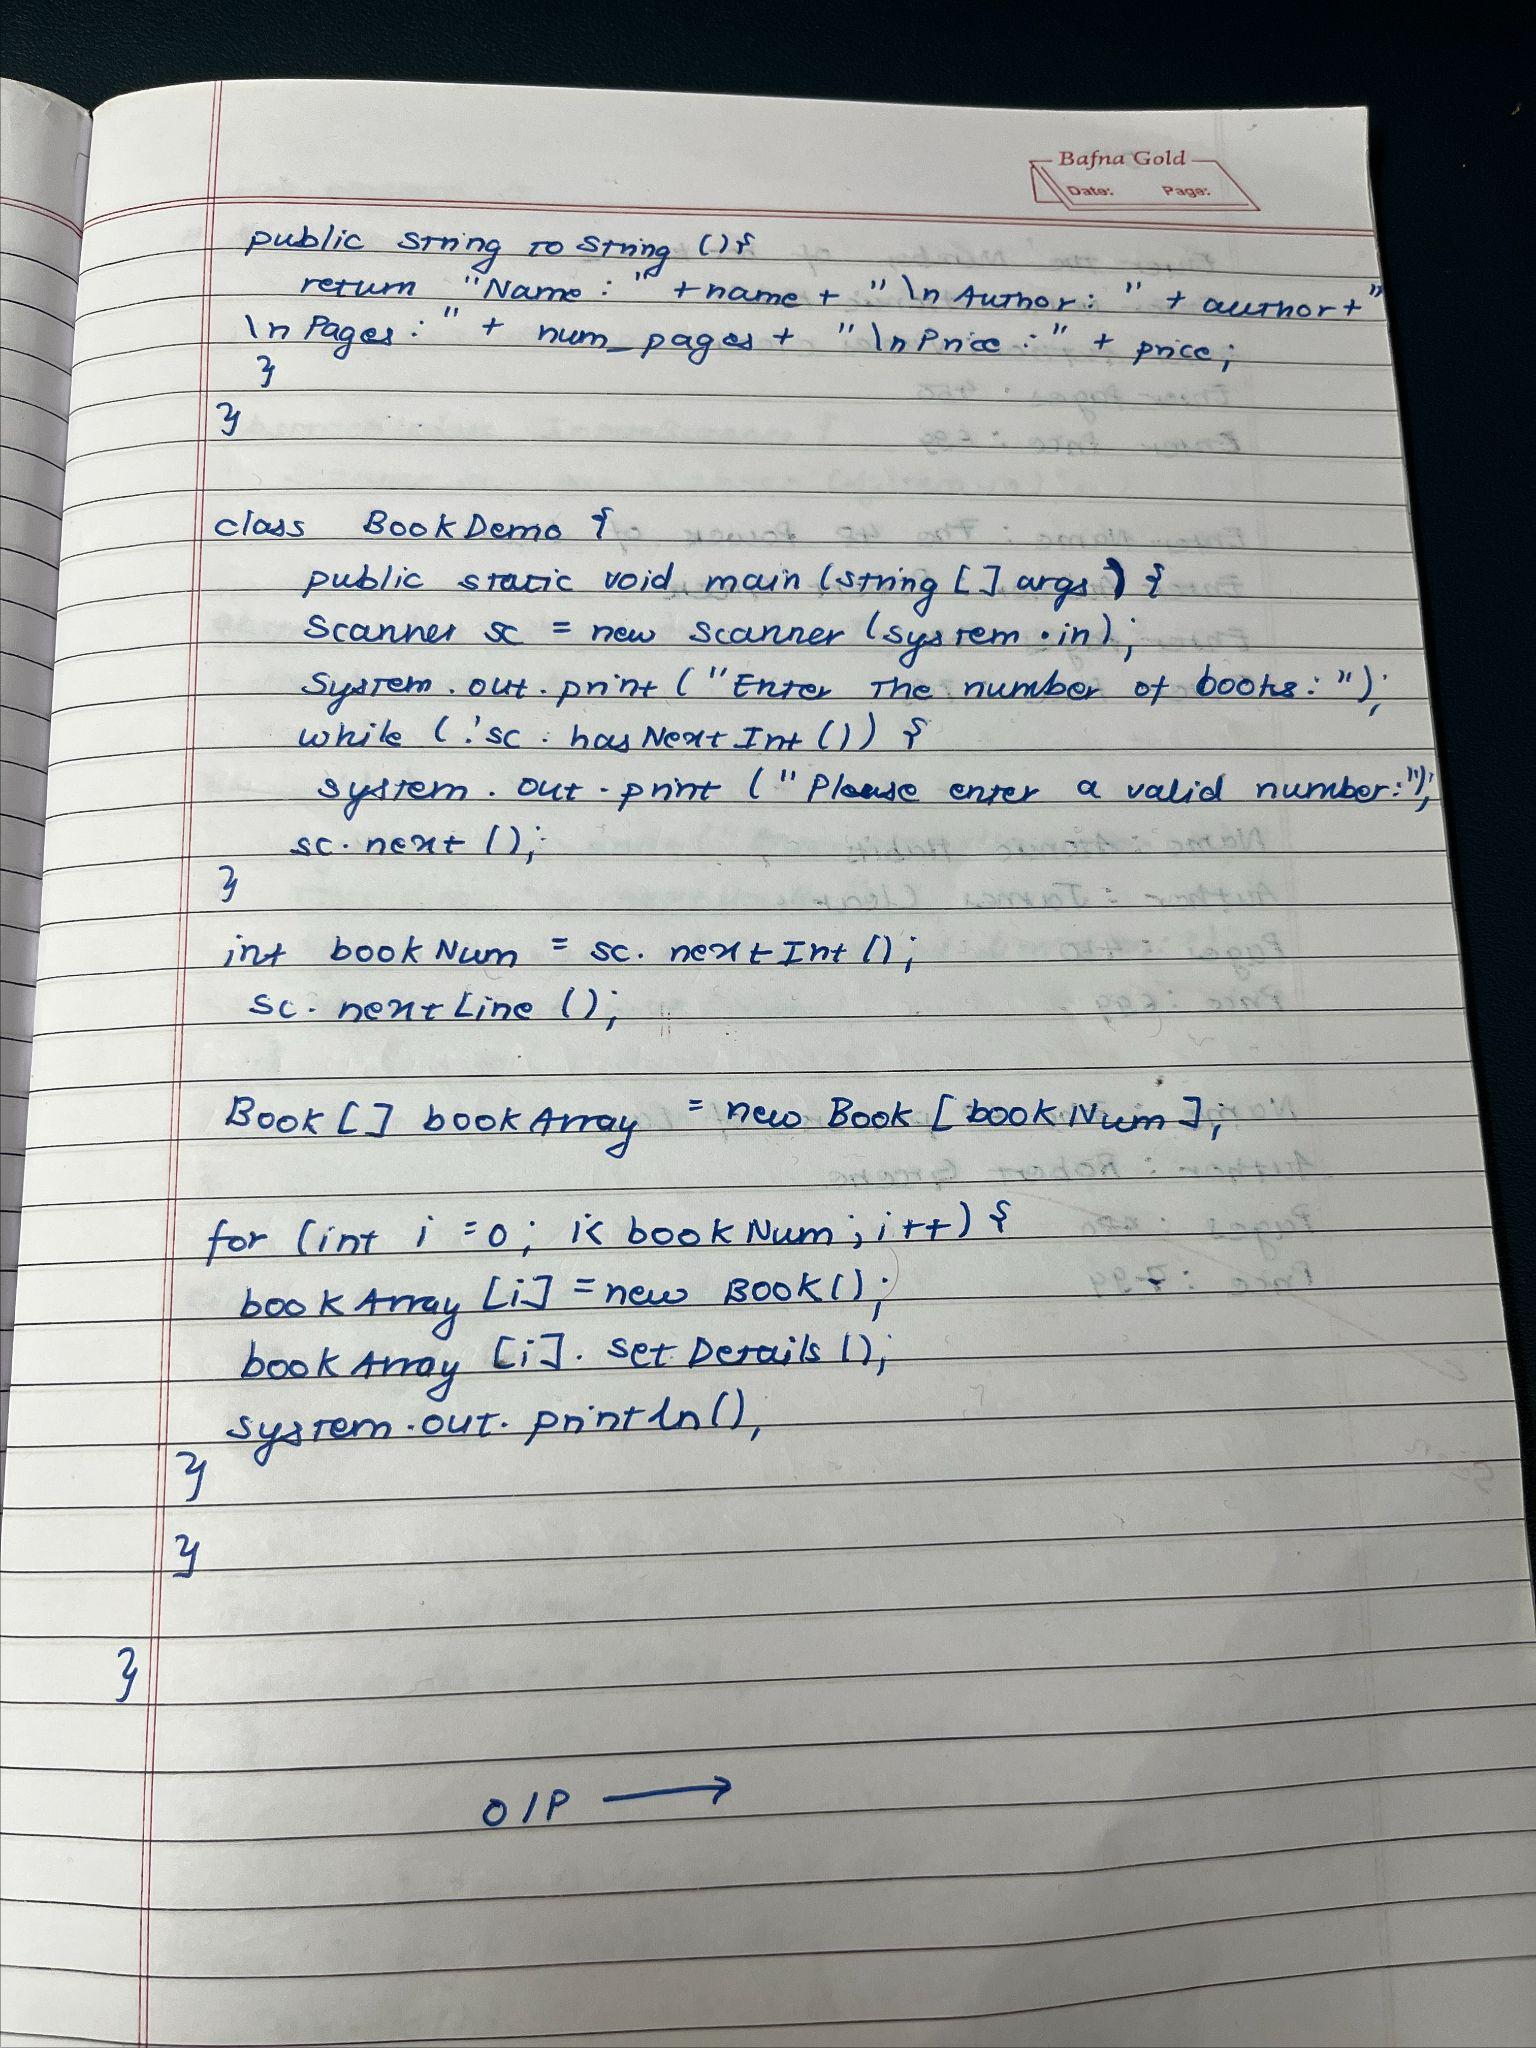 Bafna Gold
Date: Page:
public String to String () {
return "Name : " + name + " \n Author : " + author + "
\n Pages : " + num_pages + " \n Price : " + price ;
}
}
class BookDemo {
public static void main (string [] args) {
Scanner sc = new scanner (system.in);
System.out.print ("Enter the number of books: ");
while (!sc.hasNextInt ()) {
system.out.print ("Please enter a valid number:");
sc.next ();
}
int bookNum = sc.nextInt ();
sc.nextLine ();
Book [] bookArray = new Book [bookNum];
for (int i = 0; i < bookNum; i++) {
bookArray [i] = new Book ();
bookArray [i]. setDetails ();
system.out.println (),
}
}
}
O/P →